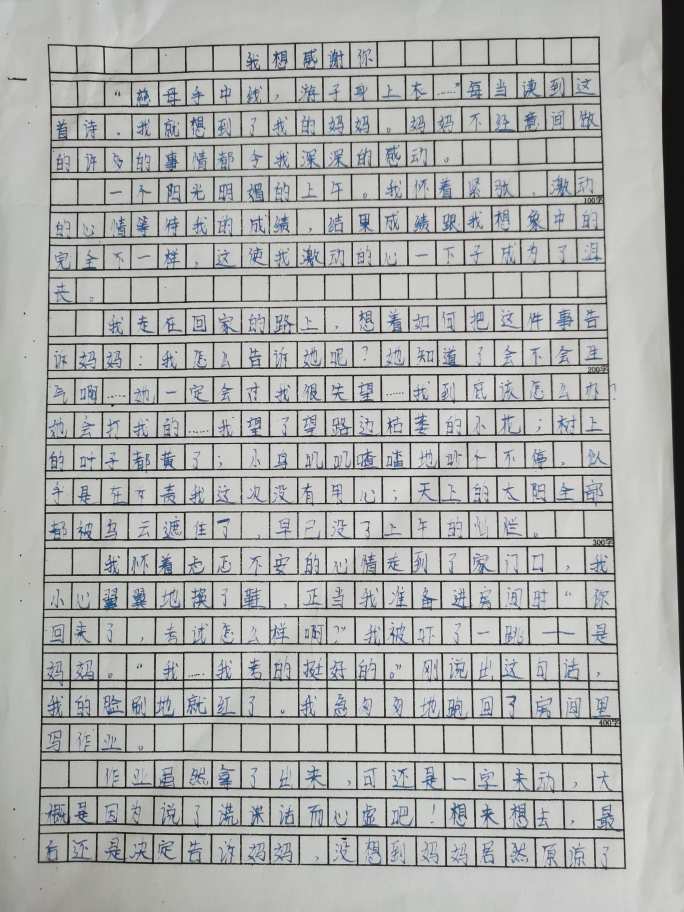 我想感谢你
“慈母手中线，游子身上衣……”每当读到这
首诗，我就想到了我的妈妈。妈妈不经意间做
的许多的事情都令我深深的感动。
一个阳光明媚的上午。我怀着紧张、激动
100字
的心情等待我的成绩，结果成绩跟我想象中的
完全不一样，这使我激动的心一下子成为了沮
丧。
我走在回家的路上，想着如何把这件事告
诉妈妈：我怎么告诉她呢？她知道了会不会生
200字
气啊……她一定会对我很失望……我到底该怎么办？
她会打我的……我望了望路边枯萎的小花；树上
的叶子都黄了；小鸟叽叽喳喳地叫个不停，似
乎是在责我这次没有用心；天上的太阳全部
都被乌云遮住了，早已没了上午的灿烂。
300字
我怀着忐忑不安的心情走到了家门口，我
小心翼翼地换了鞋，正当我准备进房间时“你
回来了，考试怎么样啊？”我被吓了一跳——是
妈妈。“我……我考的挺好的。”刚说出这句话，
我的脸刷地就红了。我急匆匆地跑回了房间里
400字
写作业。
作业虽然拿了出来，可还是一字未动，大
概是因为说了谎话而心虚吧！想来想去，最
后还是决定告诉妈妈，没想到妈妈居然原谅了